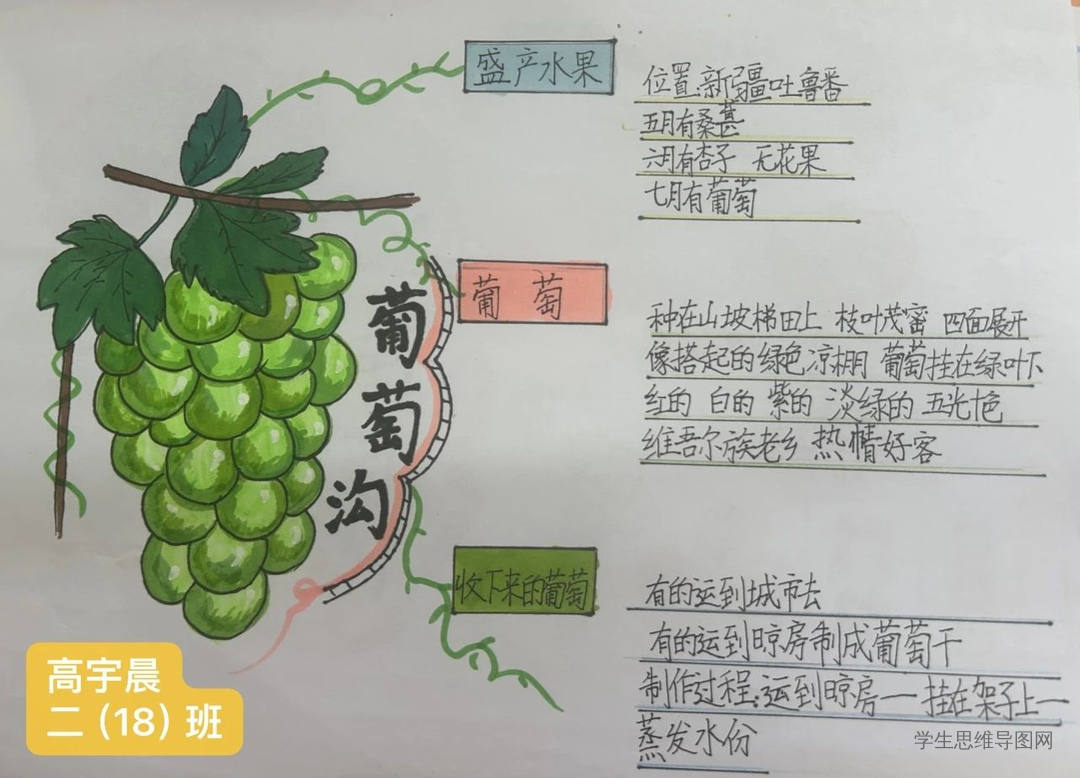 盛产水果
位置:新疆吐鲁番
五月有桑葚
六月有杏子 无花果
七月有葡萄
葡萄沟
葡萄
种在山坡梯田上 枝叶茂密 四面展开
像搭起的绿色凉棚 葡萄挂在绿叶下
红的 白的 紫的 淡绿的 五光十色
维吾尔族老乡 热情好客
收下来的葡萄
有的运到城市去
有的运到晾房制成葡萄干
制作过程:运到晾房一挂在架子上一
蒸发水份
高宇晨
二(18)班
学生思维导图网